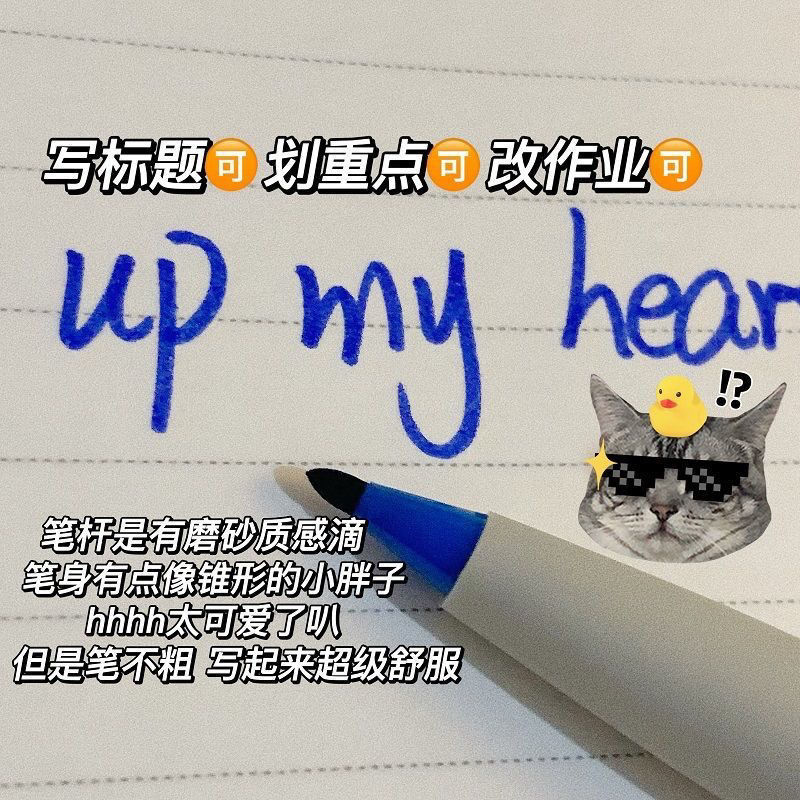 写标题🉑划重点🉑改作业🉑
up my hear
!?
笔杆是有磨砂质感滴
笔身有点像锥形的小胖子
hhhh太可爱了叭
但是笔不粗 写起来超级舒服